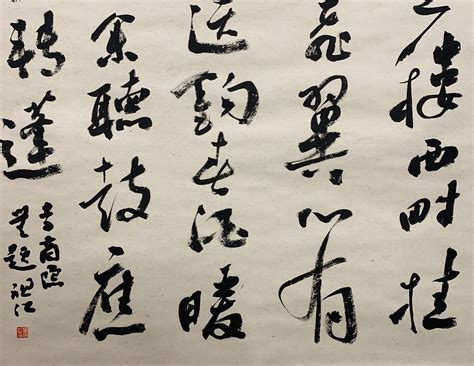 樓西畔桂
飛翼心有
送鈎春酒暖
余聽鼓應
轉蓬
李商隱
無題